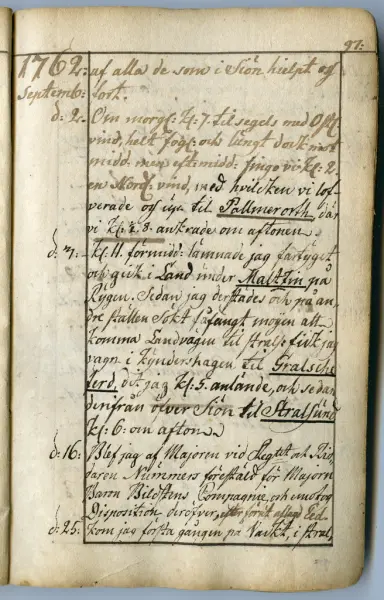 97:
1762: af alla de som i Siön hielpt og
Septemb: fort.
d: 2. Om morg: Kl: 7. til segels med Ost
vind, helt fog: och långt dock mot
midd: men eft: midd: finge vi Kl: 2.
en Nord: vind, med hvilcken vi lof-
verade og up til Pallmerorth, där
vi Kl: 8. anckrade om aftonen.
d: 3. Kl: 11. förmidd: lämnade jag fartyget
och gick i Land under Maltzin på
Rügen. Sedan jag derstädes och på an-
dre ställen sökt fåfängt möyen att
komma Landvägen til Stralss: fick jag
vagn i Kyndershagen til Gralsche
ferd, dit jag Kl: 5. anlände, och sedan
derifrån öfver Siön til Stralsund
Kl: 6: om afton.
d: 16: Blef jag af Majoren vid Regtet och Rid-
daren Nummers förestäld för Majorn
Baron Bildstens Compagnie, och emottog
Disposition deröfver, efter förut aflagd Eed
d: 25: Kom jag första gången på Vackt, i Stral,